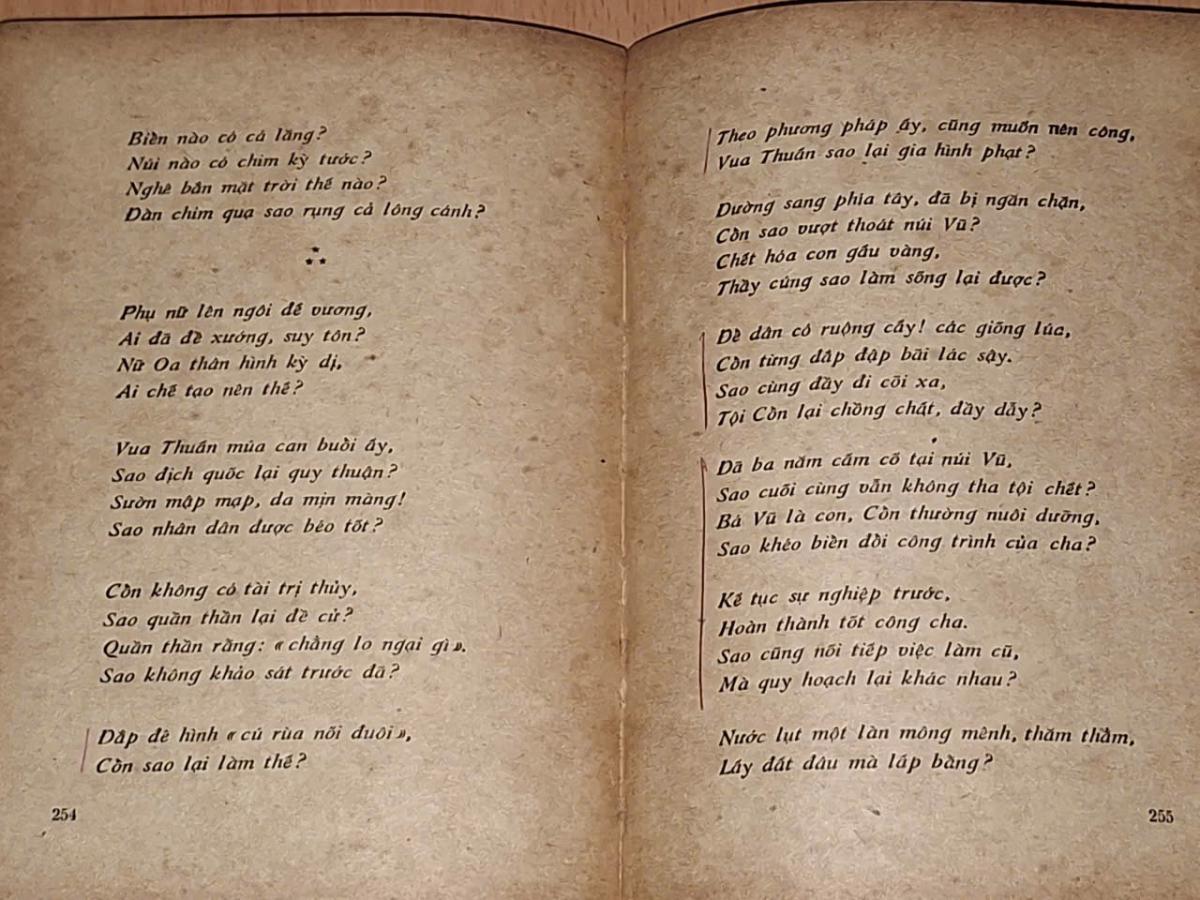 Biển nào có cá lăng?
Núi nào có chim kỳ tước?
Nghê bắn mặt trời thế nào?
Đàn chim quạ sao rụng cả lông cánh?
Phụ nữ lên ngôi đế vương,
Ai đã đề xướng, suy tôn?
Nữ Oa thân hình kỳ dị,
Ai chế tạo nên thế?
Vua Thuấn múa can buổi ấy,
Sao địch quốc lại quy thuận?
Sườn mập mạp, da mịn màng!
Sao nhân dân được béo tốt?
Cồn không có tài trị thủy,
Sao quần thần lại đề cử?
Quần thần rằng: «chẳng lo ngại gì».
Sao không khảo sát trước đã?
Đắp đê hình «cú rùa nối đuôi»,
Cồn sao lại làm thế?
254
Theo phương pháp ấy, cũng muốn nên công,
Vua Thuấn sao lại gia hình phạt?
Đường sang phía tây, đã bị ngăn chặn,
Cồn sao vượt thoát núi Vũ?
Chết hóa con gấu vàng,
Thầy cúng sao làm sống lại được?
Để dân có ruộng cấy! các giống lúa,
Cồn từng đắp đập bãi lác sậy.
Sao cùng đầy đi cõi xa,
Tội Cồn lại chồng chất, đầy dẫy?
Đã ba năm cấm cố tại núi Vũ,
Sao cuối cùng vẫn không tha tội chết?
Bá Vũ là con, Cồn thường nuôi dưỡng,
Sao khéo biến đổi công trình của cha?
Kế tục sự nghiệp trước,
Hoàn thành tốt công cha.
Sao cũng nối tiếp việc làm cũ,
Mà quy hoạch lại khác nhau?
Nước lụt một làn mông mênh, thăm thẳm,
Lấy đất đâu mà lấp bằng?
255